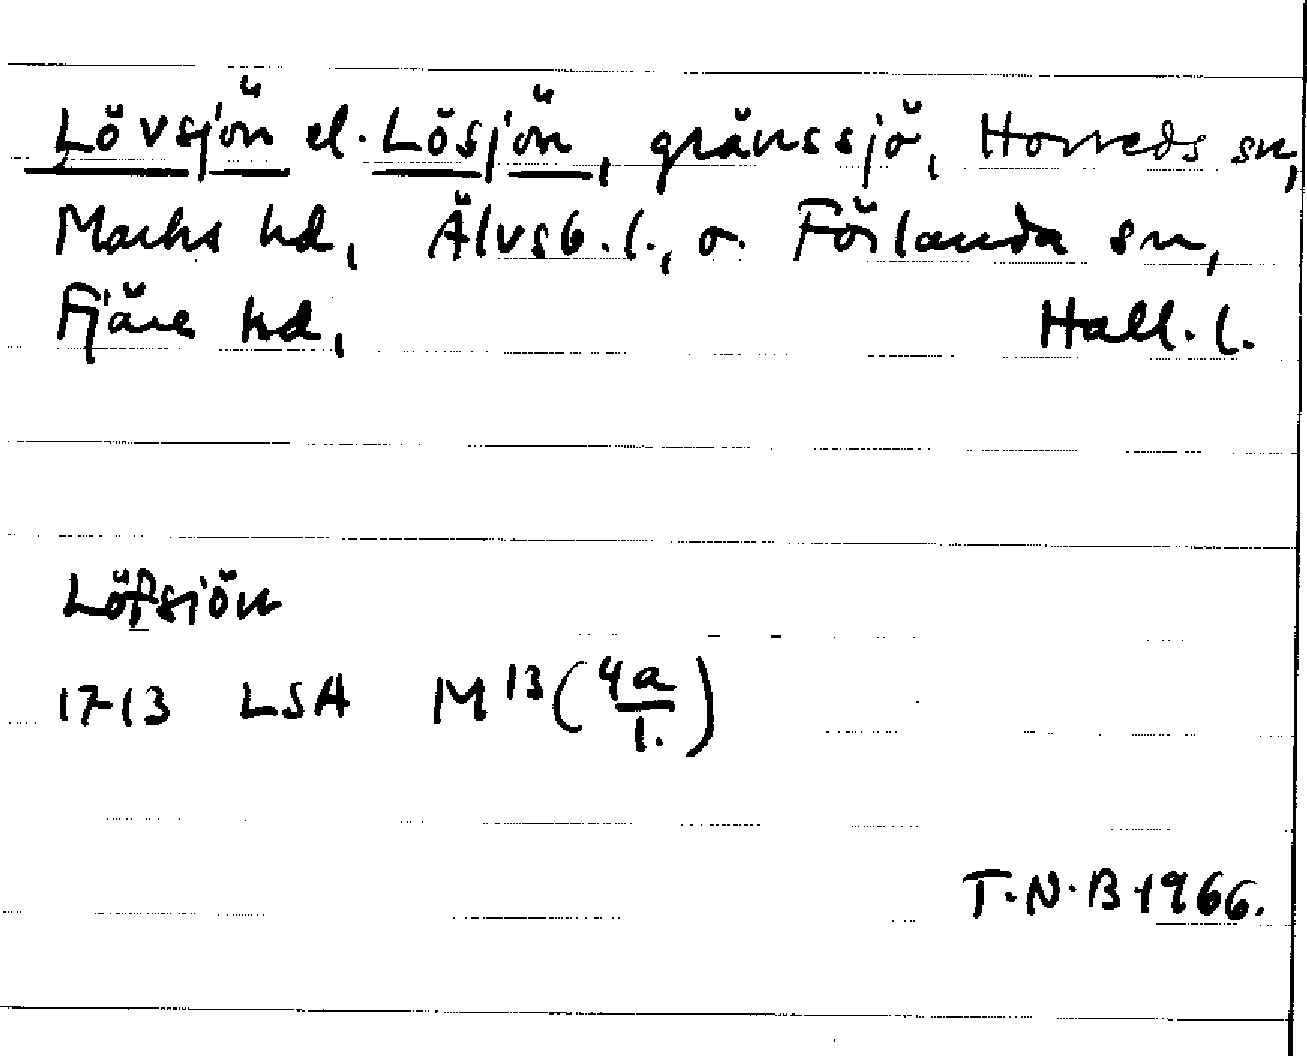 Lövsjön el. Lösjön, gränssjö, Horreds sn,
Marks hd, Älvsb. l., o. Förlanda sn,
Fjäre hd, Hall. l.
Löfsiön
1713 LSA M¹³(4a/1.)
T.N.B 1966.